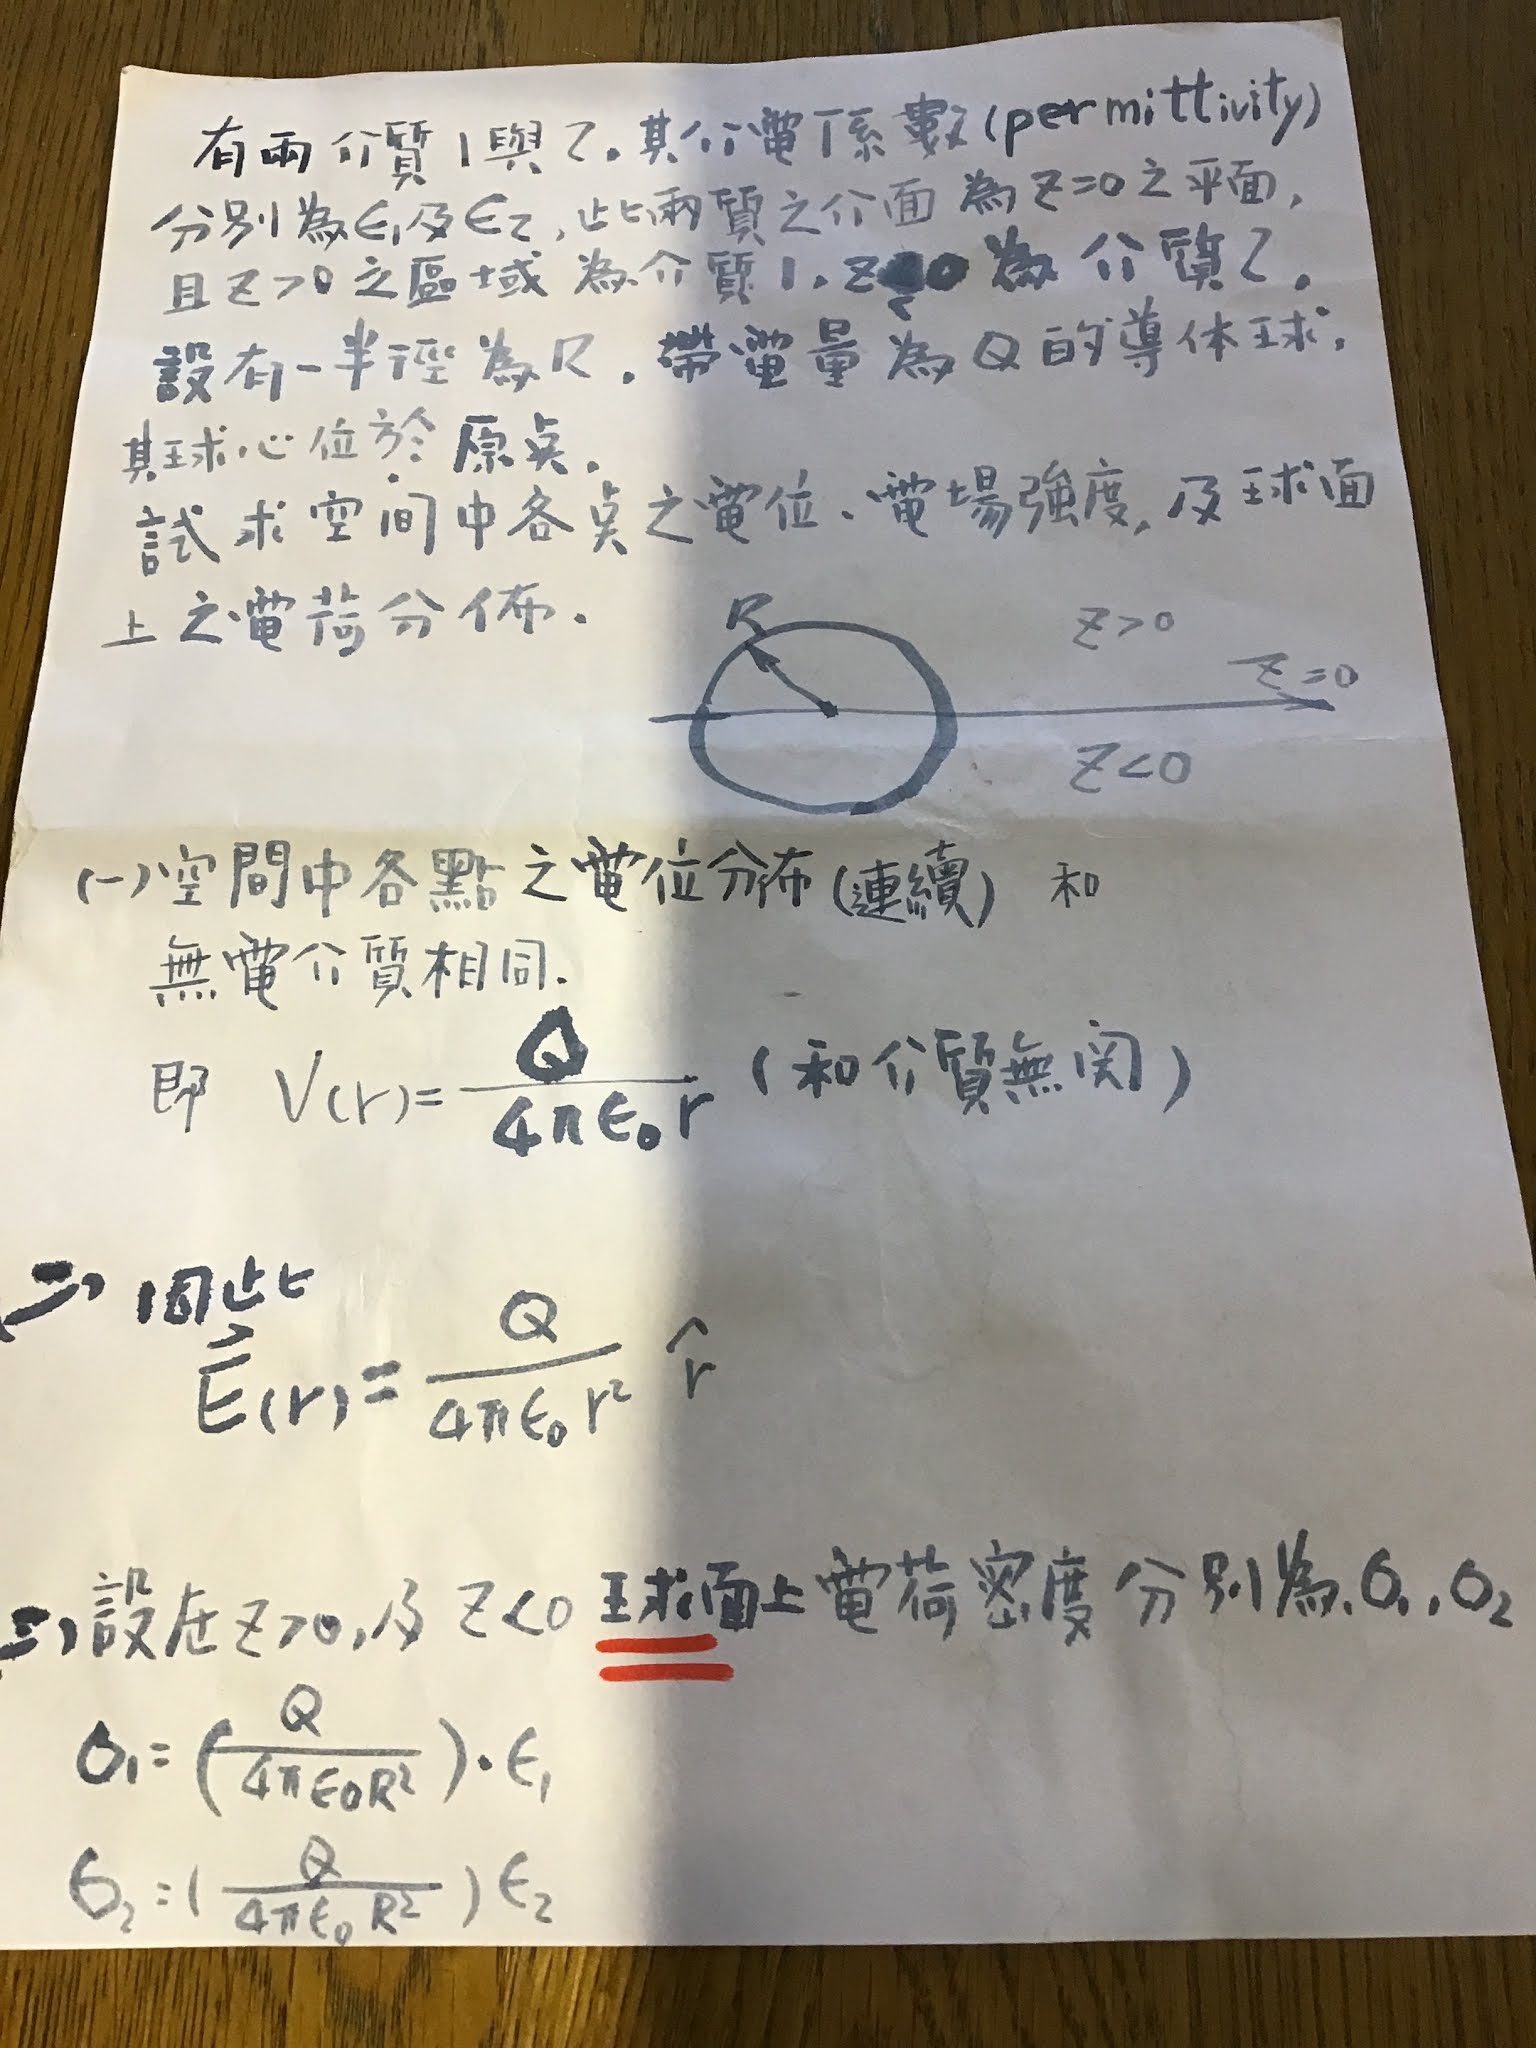 有兩介質1與2.其介電係數(permittivity)
分別為ϵ₁及ϵ₂,此兩質之介面為Z=0之平面,
且Z>0之區域為介質1,Z<0為介質2.
設有一半徑為R.帶電量為Q的導体球,
其球心位於原点.
試求空間中各点之電位、電場強度,及球面
上之電荷分佈.
R
Z>0
Z=0
Z<0
(一)空間中各點之電位分布(連續) 和
無電介質相同.
即 V(r)=Q/(4πϵ₀r) (和介質無関)
(二)因此
E⃗(r)=Q/(4πϵ₀r²) r̂
(三)設在Z>0,及Z<0球面上電荷密度分別為σ₁,σ₂
σ₁=(Q/(4πϵ₀R²))·ϵ₁
σ₂=(Q/(4πϵ₀R²))ϵ₂